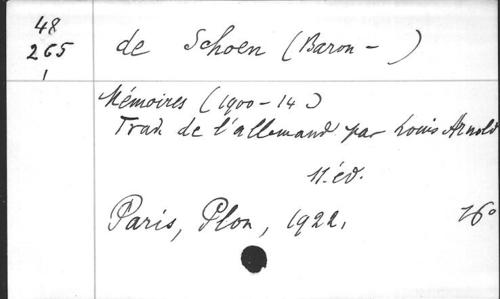 48
265
1
de Schoen (Baron - )
Mémoires (1900-14)
Trad. de l'allemand par Louis Arnold
11. éd.
Paris, Plon, 1922. 16°